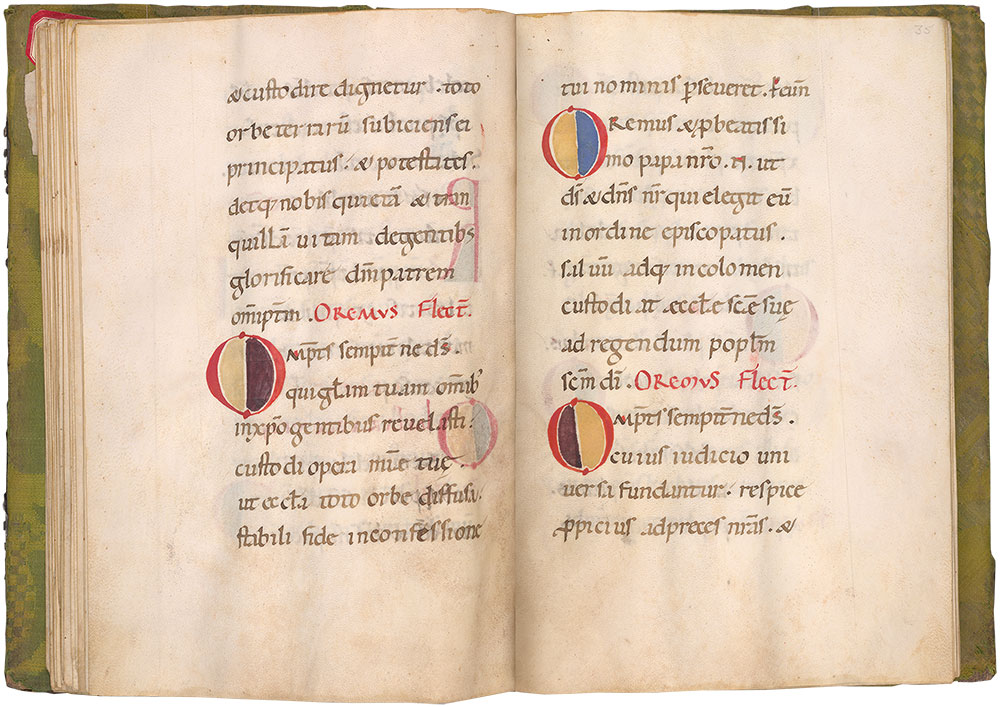 & custodire dignetur. toto
orbe terrarū subiciens ei
principatus. & potestates.
detq; nobis quietā & tran
quillā uitam degentibs
glorificare dm̄ patrem
om̄iptm. OREMUS Flect̄.
Omp̄ts sempitne ds̄.
qui glam tuam omib'
in xp̄o gentibus reuelasti:
custodi opera mīe tuę.
ut eccla toto orbe diffusa.
stabili fide in confessione
35
tui nominis pseueret. P eum̄
OREMUS & p beatissi
mo papa nr̄o. N. ut
ds̄ & dn̄s nr̄ qui elegit eū
in ordine episcopatus.
saluū adq; incolomen
custodiat eccłe scę suę
ad regendum poplm̄
scm̄ dī. OREMUS Flect̄.
Omp̄ts sempitne ds̄.
cuius iudicio uni
uersa fundantur. respice
ppicius ad preces nr̄as. &